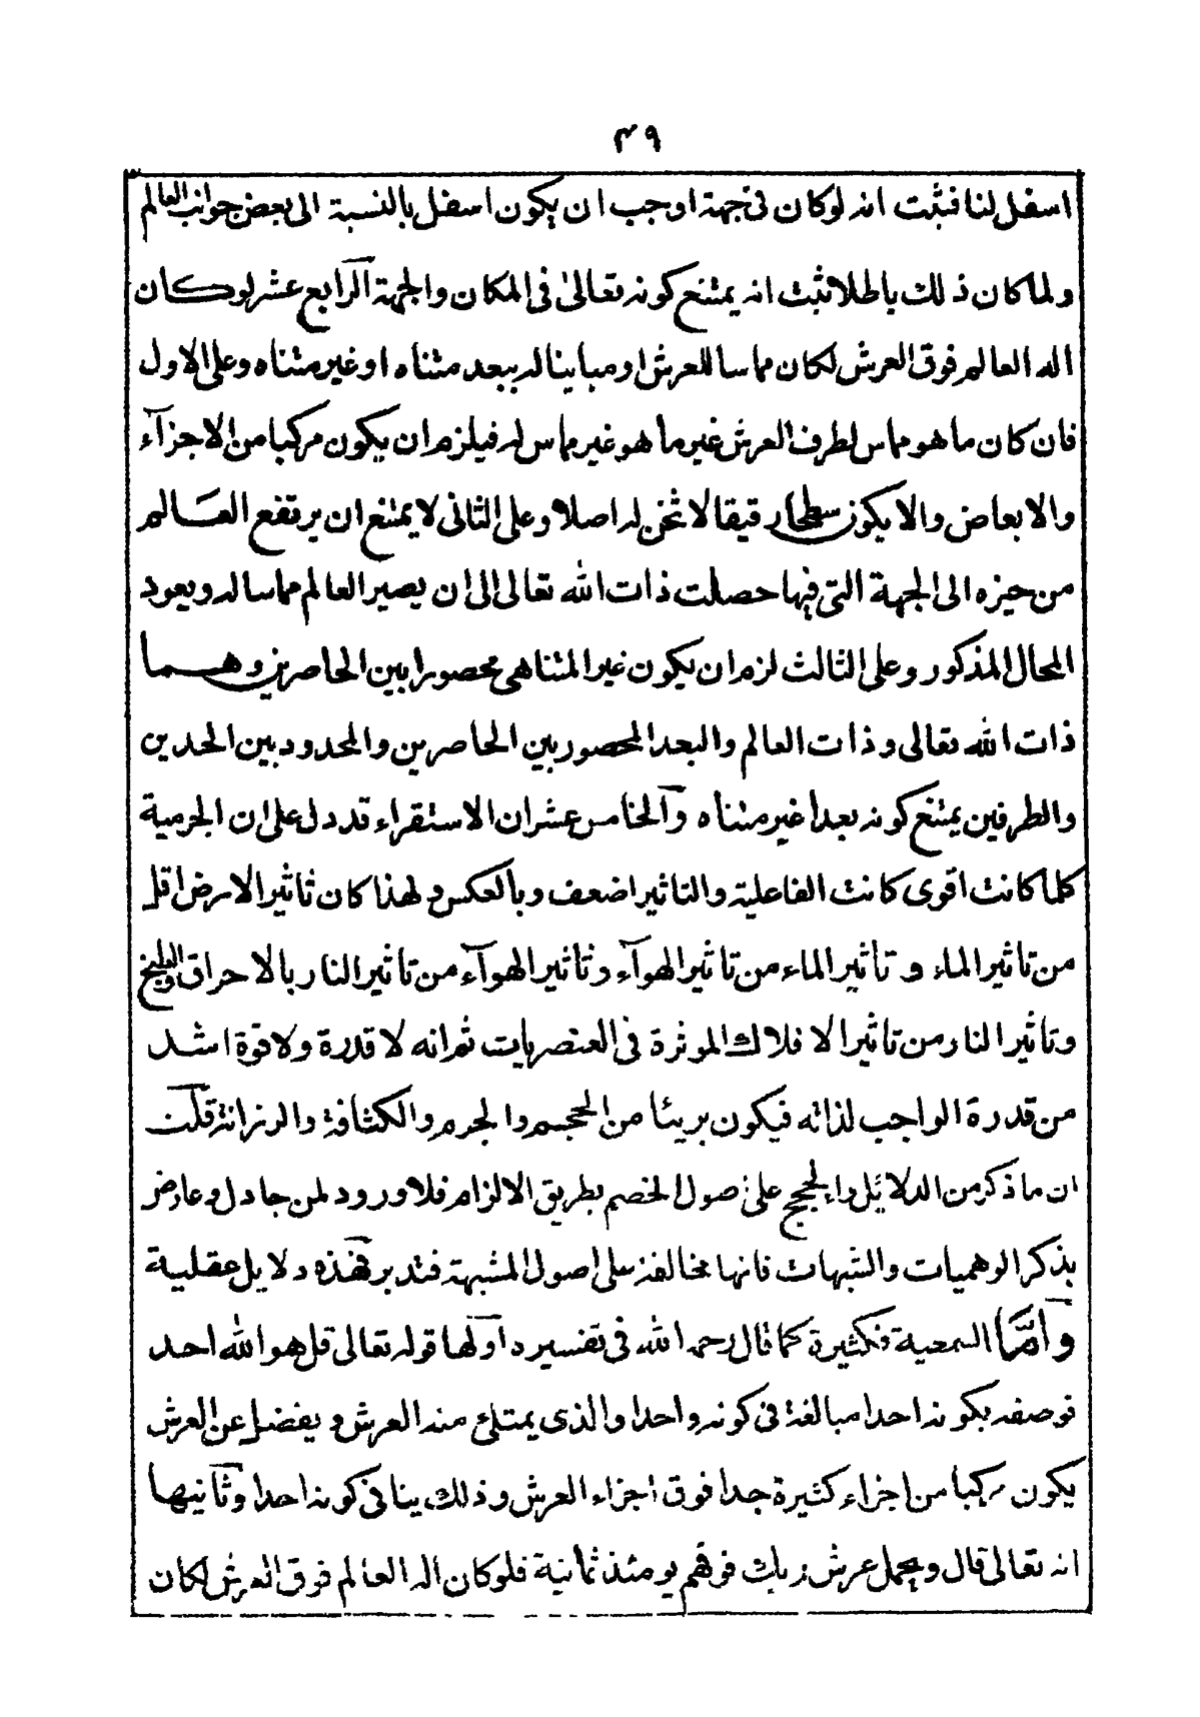 ٤٩
اسفل لنا فثبت انه لو كان فى جهة اوجب ان يكون اسفل بالنسبة الى بعض جوانب العالم
ولما كان ذلك باطلا ثبت انه يمتنع كونه تعالى فى المكان والجهة الرابع عشر لو كان
اله العالم فوق العرش لكان مماسا للعرش او مباينا له ببعد متناه او غير متناه وعلى الاول
فان كان ما هو مماس لطرف العرش غير ما هو غير مماس له فيلزم ان يكون مركبا من الاجزآء
والابعاض والا يكون سطحا رقيقا لا ثخن له اصلا وعلى الثانى لا يمتنع ان يرتفع العالم
من حيزه الى الجهة التى فيها حصلت ذات الله تعالى الى ان يصير العالم مماسا له ويعود
المحال المذكور وعلى الثالث لزم ان يكون غير المتناهى محصورا بين الحاصرين وهما
ذات الله تعالى وذات العالم والبعد المحصور بين الحاصرين والمحدود بين الحدين
والطرفين يمتنع كونه بعدا غير متناه وآلخامس عشر ان الاستقراء قد دل على ان الجرمية
كلما كانت اقوى كانت الفاعلية والتاثير اضعف وبالعكس ولهذا كان تاثير الارض اقل
من تاثير الماء و تاثير الماء من تاثير الهوآء وتاثير الهوآء من تاثير النار بالاحراق والطبخ
وتاثير النار من تاثير الافلاك الموثرة فى العنصريات ثم انه لا قدرة ولا قوة اشد
من قدرة الواجب لذاته فيكون بريئا من الحجم والجرم والكثافة والرزانة قلت
ان ما ذكر من الدلائل والحجج على اصول الخصم بطريق الالزام فلا ورود لمن جادل وعارض
بذكر الوهميات والشبهات فانها مخالفة على اصول المشبهة فتدبر فهذه دلايل عقلية
وآمّا السمعية فكثيرة كما قال رحمه الله فى تفسيره اولها قوله تعالى قل هو الله احد
فوصفه بكونه احدا مبالغة فى كونه واحدا والذى يمتلئ منه العرش ويفضل عن العرش
يكون مركبا من اجزاء كثيرة جدا فوق اجزاء العرش وذلك ينافى كونه احدا وثانيها
انه تعالى قال ويحمل عرش ربك فوقهم يومئذ ثمانية فلو كان اله العالم فوق العرش لكان